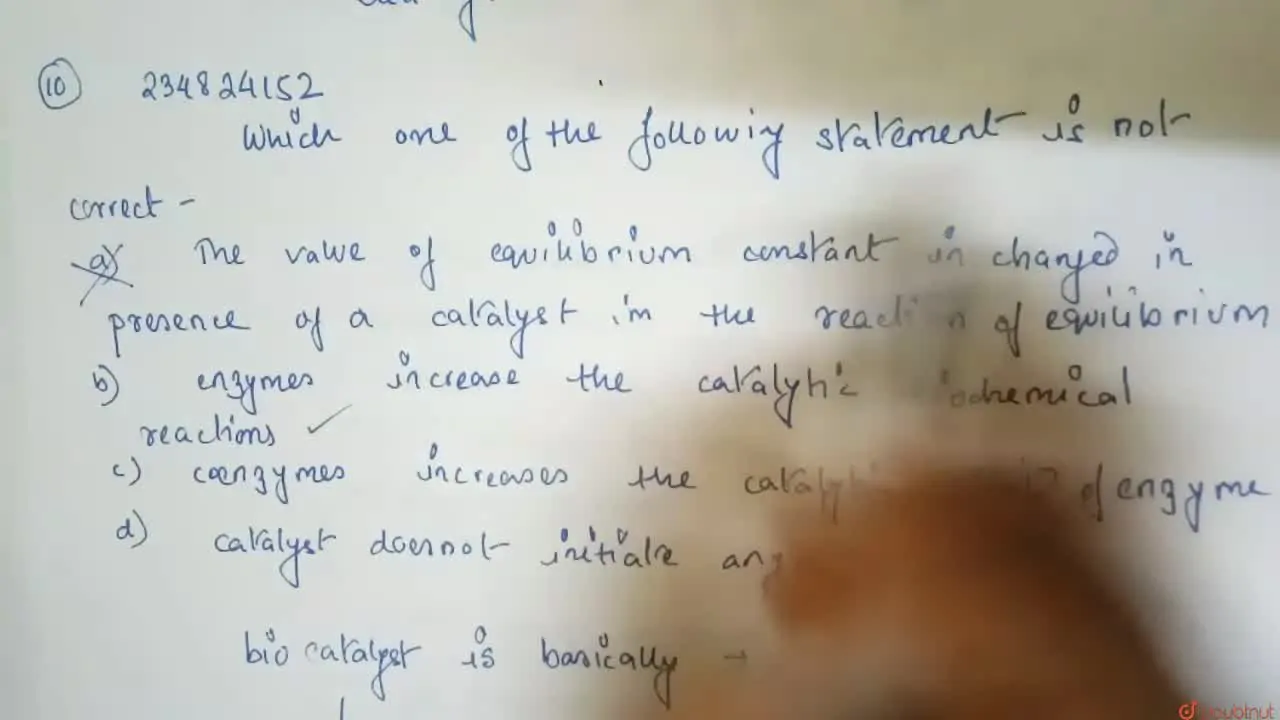 10 234824152
Which one of the following statement is not
correct -
a) The value of equilibrium constant in changed in
presence of a catalyst in the of equilibrium
b) enzymes increase the catalytic
reactions ✓
c) coenzymes increases the of enzyme
d) catalyst doesnot initiate
bio catalyst is basically →
doubtnut